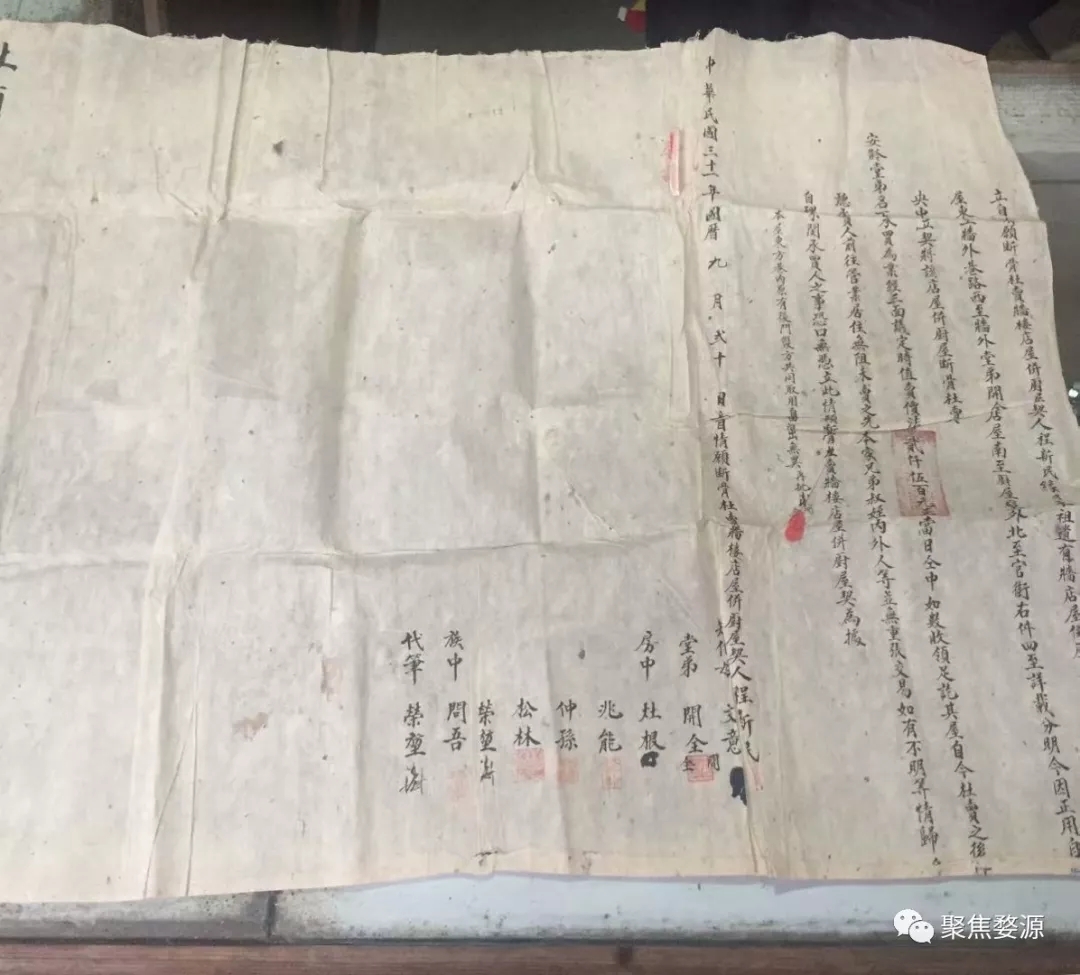 立自願斷骨杜賣牆樓店屋併廚屋契人程新民 祖遺有牆店屋
屋東至牆外巷路西至牆外堂弟開全店屋南至廚屋外北至官衖右件四至詳載分明今因正用自
央中立契將該店屋併廚屋斷骨杜賣
安 堂弟名下承買為業經三面議定時值賣價 貳仟伍百元 當日仝中如數收領足訖其屋自今杜賣之後
聽買人前往管業居住無阻未賣之先本家兄弟叔姪內外人等並無重張交易如有不明等情歸
自理不關承買人之事恐口無憑立此情願斷骨杜賣牆樓店屋併廚屋契為據
本屋東方巷內原有後門雙方共同取用 無異再批
中華民國三十一年國曆九月弍十日立情願斷骨杜賣牆樓店屋併廚屋契人程新民
文意
堂弟 開全
房中 灶根
兆能
仲孫
松林
榮堃
族中 問吾
代筆 榮堃
聚焦婺源